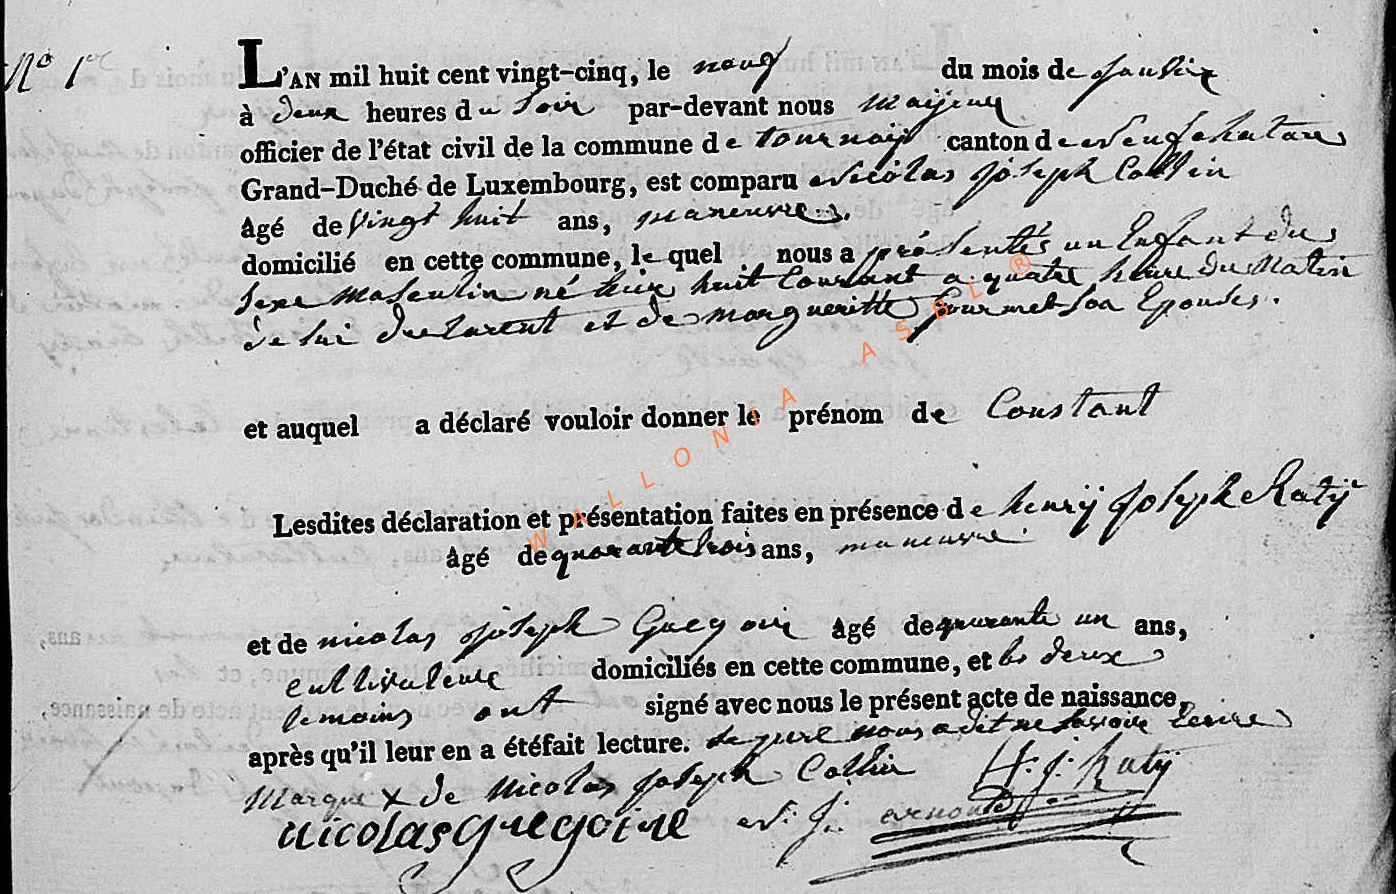 No 1er
L'AN mil huit cent vingt-cinq, le neuf du mois de Janvier
à deux heures du Soir par-devant nous Maijeur
officier de l'état civil de la commune de tournaij canton de Neufchatau
Grand-Duché de Luxembourg, est comparu Nicolas Joseph Collin
âgé de vingt huit ans, maneuvre.
domicilié en cette commune, le quel nous a présentés un Enfant du
Sexe Masculin né hier huit Courant a quatre heure du Matin
de lui declarent et de margueritte Sa Epouse.
et auquel a déclaré vouloir donner le prénom de Constant
Lesdites déclaration et présentation faites en présence de henrij Joseph Ratij
âgé de quarante trois ans, maneuvre
et de nicolas Joseph Gregoire âgé de quarante un ans,
cultivateur domiciliés en cette commune, et les deux
temoins ont signé avec nous le présent acte de naissance,
après qu'il leur en a étéfait lecture. le pere nous a dit ne savoir Ecrire
Marque x de Nicolas Joseph Collin H. J. Ratij
nicolas gregoire N. J. arnould
WALLONIA ASBL ®